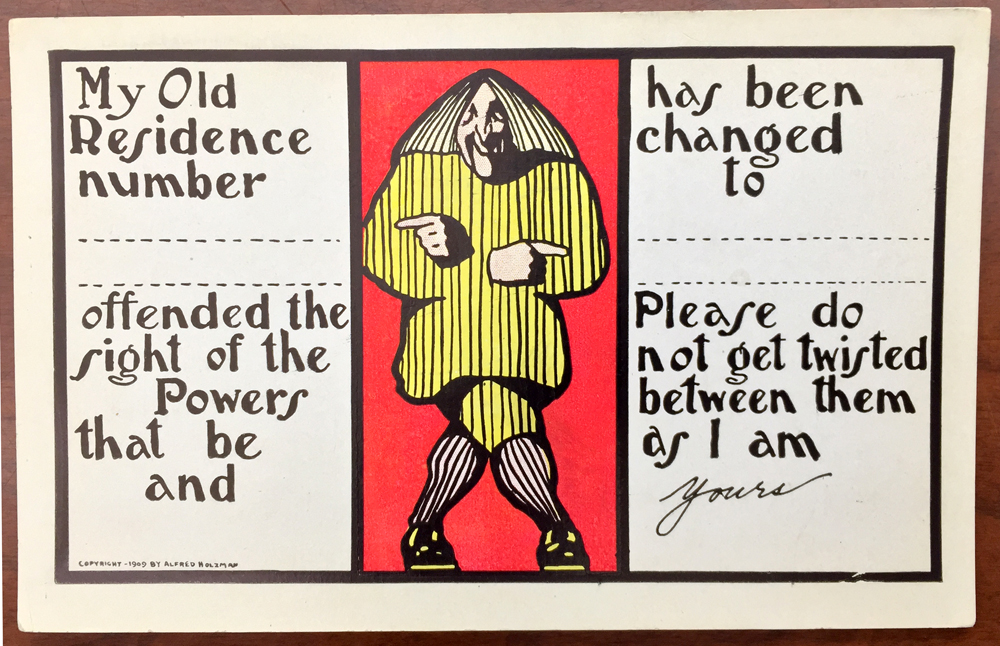 My Old
Residence
number
offended the
sight of the
Powers
that be
and
COPYRIGHT - 1909 BY ALFRED HOLZMAN
has been
changed
to
Please do
not get twisted
between them
as I am
Yours